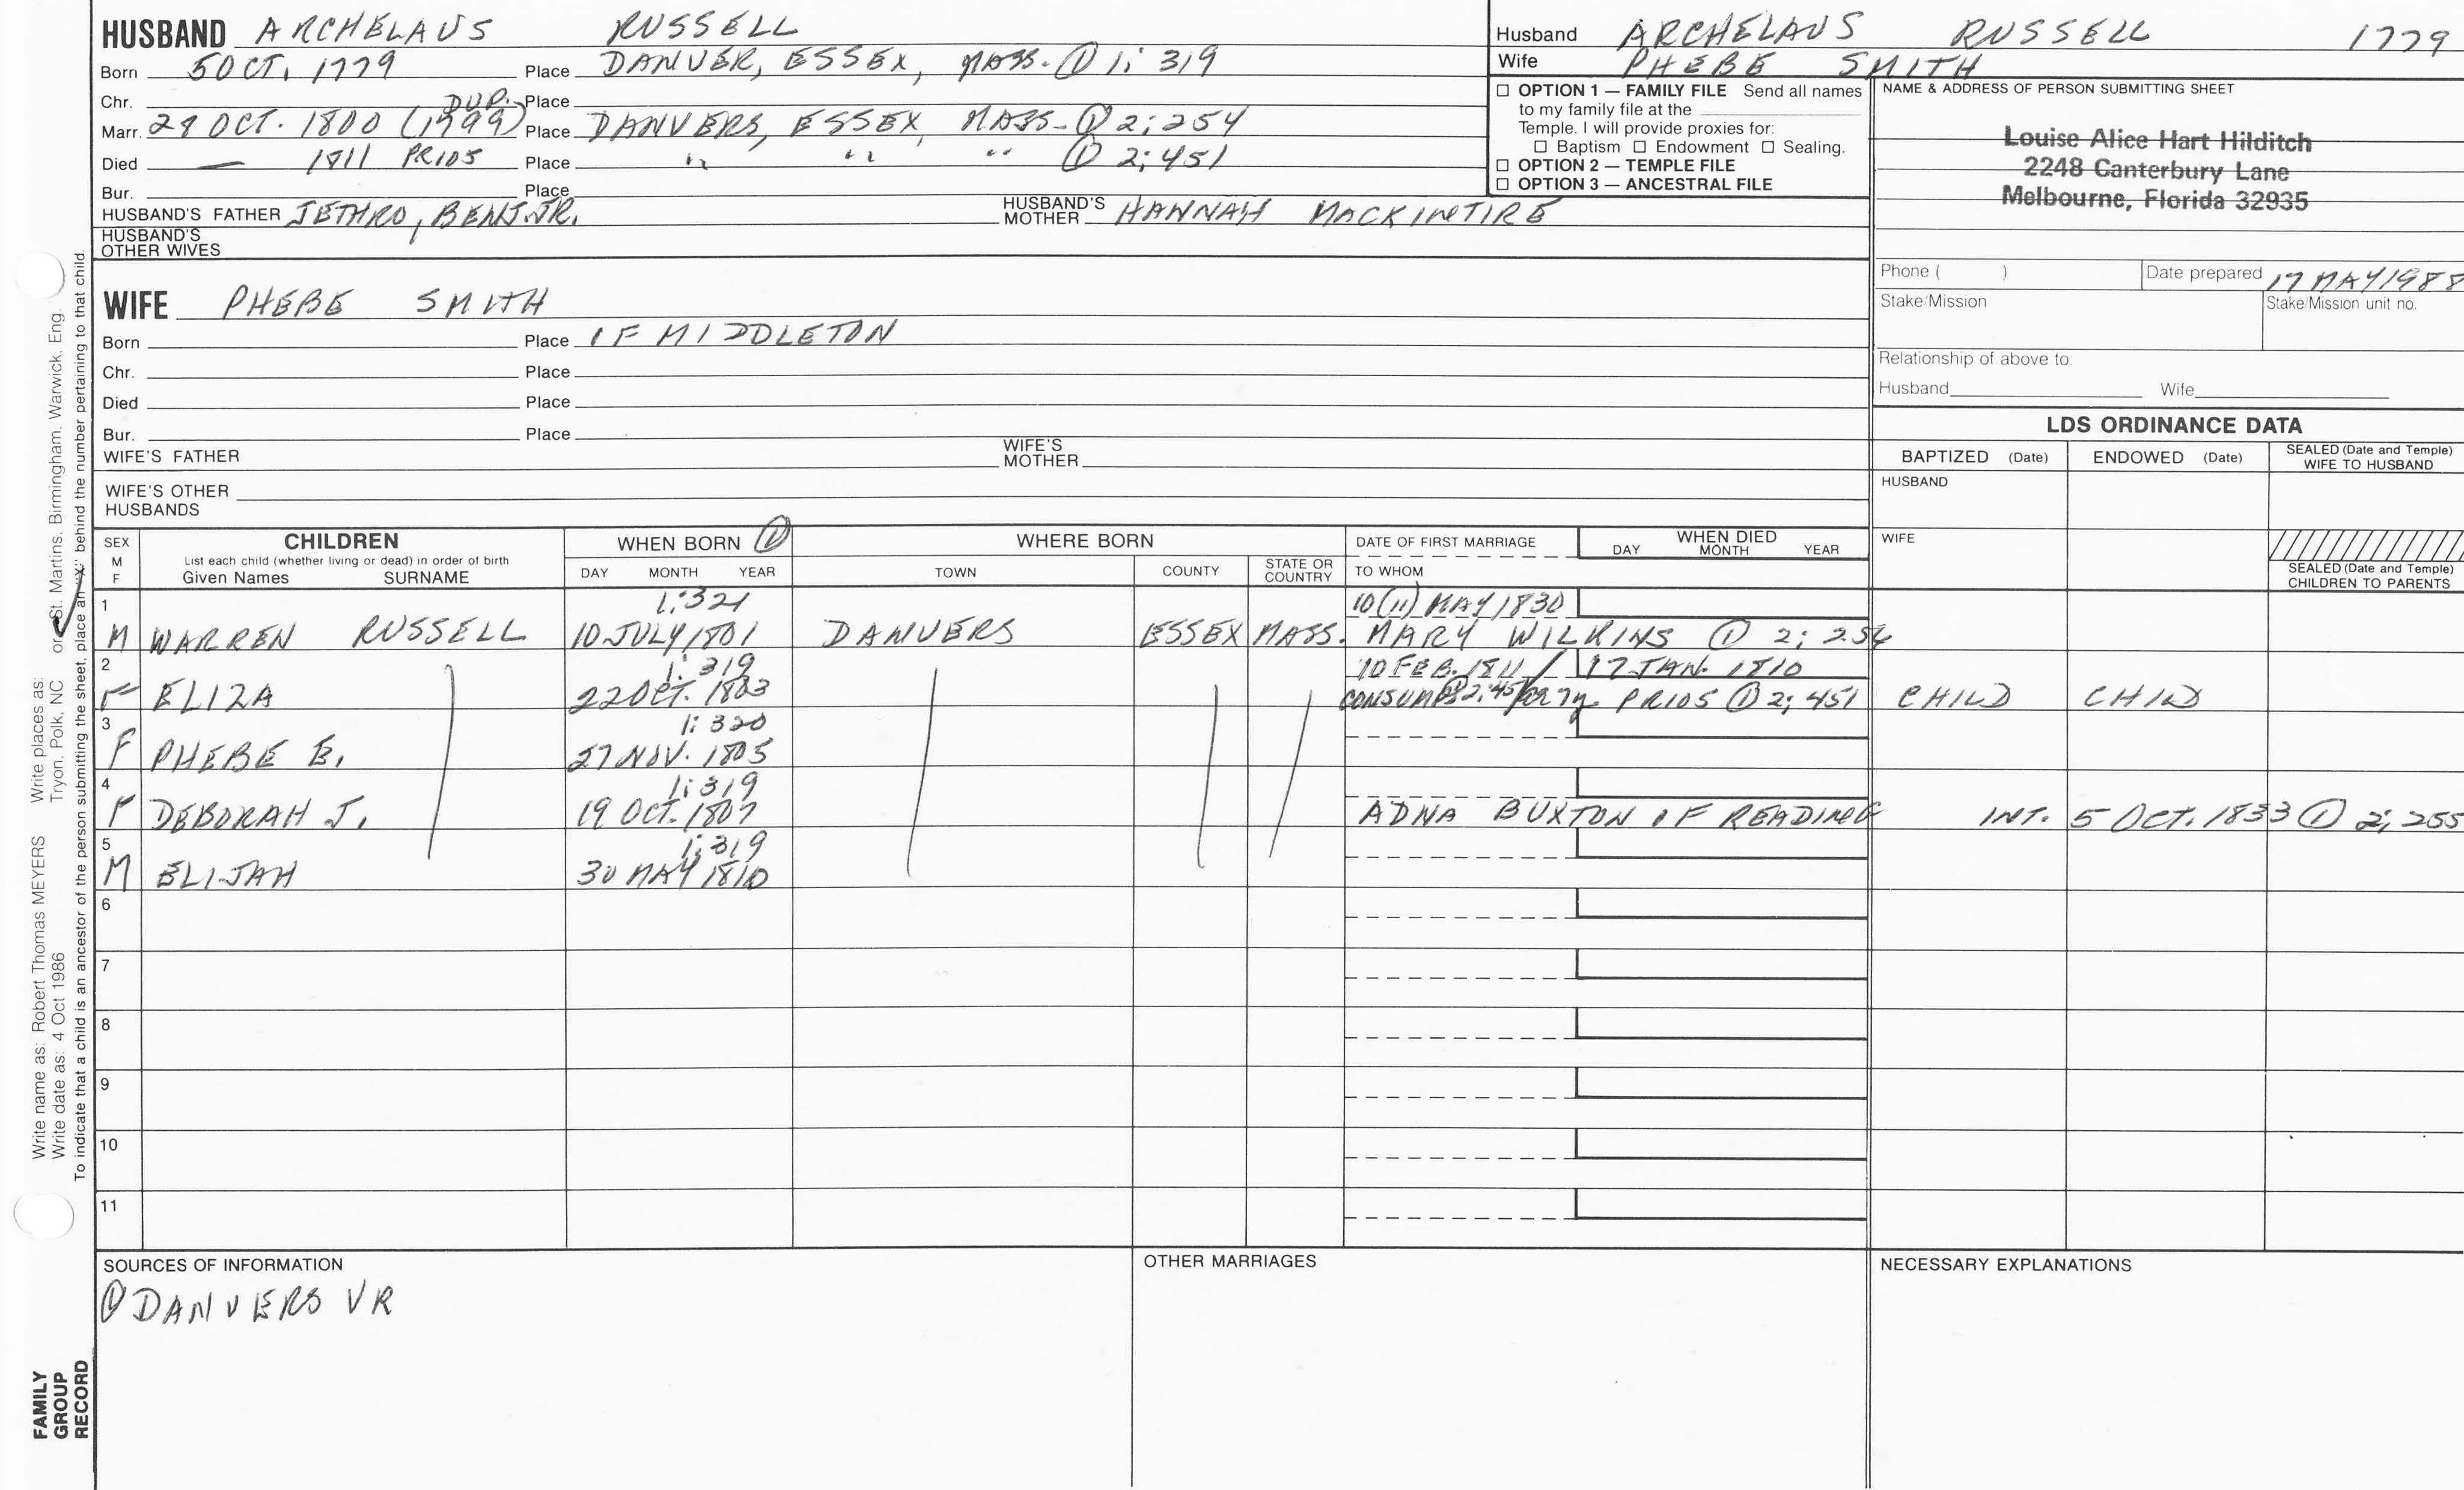 HUSBAND ARCHELAUS RUSSELL
Born 5 OCT. 1779 Place DANVER, ESSEX, MASS. ① 1: 319
Chr. DUP. Place
Marr. 29 OCT. 1800 (1799) Place DANVERS, ESSEX, MASS. ① 2; 254
Died — 1811 PR105 Place " " " ① 2; 451
Bur. Place
HUSBAND'S FATHER JETHRO, BENJ. JR. HUSBAND'S MOTHER HANNAH MACKINTIRE
HUSBAND'S OTHER WIVES
Husband ARCHELAUS RUSSELL 1779
Wife PHEBE SMITH
☐ OPTION 1 — FAMILY FILE Send all names
to my family file at the
Temple. I will provide proxies for:
☐ Baptism ☐ Endowment ☐ Sealing.
☐ OPTION 2 — TEMPLE FILE
☐ OPTION 3 — ANCESTRAL FILE
NAME & ADDRESS OF PERSON SUBMITTING SHEET
Louise Alice Hart Hilditch
2248 Canterbury Lane
Melbourne, Florida 32935
Phone ( ) Date prepared 17 MAY 1988
Stake/Mission Stake/Mission unit no.
Relationship of above to
Husband Wife
WIFE PHEBE SMITH
Born Place OF MIDDLETON
Chr. Place
Died Place
Bur. Place
WIFE'S FATHER WIFE'S MOTHER
WIFE'S OTHER HUSBANDS
LDS ORDINANCE DATA
BAPTIZED (Date) ENDOWED (Date) SEALED (Date and Temple) WIFE TO HUSBAND
HUSBAND
WIFE
SEALED (Date and Temple) CHILDREN TO PARENTS
SEX M F
CHILDREN
List each child (whether living or dead) in order of birth
Given Names SURNAME
WHEN BORN ①
DAY MONTH YEAR
WHERE BORN
TOWN COUNTY STATE OR COUNTRY
DATE OF FIRST MARRIAGE
TO WHOM
WHEN DIED
DAY MONTH YEAR
1 1:321 10(11) MAY 1830
M WARREN RUSSELL 10 JULY 1801 DANVERS ESSEX MASS. MARY WILKINS ① 2; 254
2 1: 319 10 FEB. 1811 / 17 JAN. 1810
F ELIZA 22 OCT. 1803 CONSUMP. ① 2; 451 PR105 ① 2; 451 CHILD CHILD
3 1: 320
F PHEBE E. 27 NOV. 1805
4 1: 319
F DEBORAH J. 19 OCT. 1807 ADNA BUXTON OF READING INT. 5 OCT. 1833 ① 2; 255
5 1: 319
M ELIJAH 30 MAY 1810
6
7
8
9
10
11
SOURCES OF INFORMATION
① DANVERS VR
OTHER MARRIAGES
NECESSARY EXPLANATIONS
Write name as: Robert Thomas MEYERS Write places as: Tryon, Polk, NC or St. Martins, Birmingham, Warwick, Eng.
Write date as: 4 Oct 1986
To indicate that a child is an ancestor of the person submitting the sheet, place an "x" behind the number pertaining to that child.
FAMILY
GROUP
RECORD